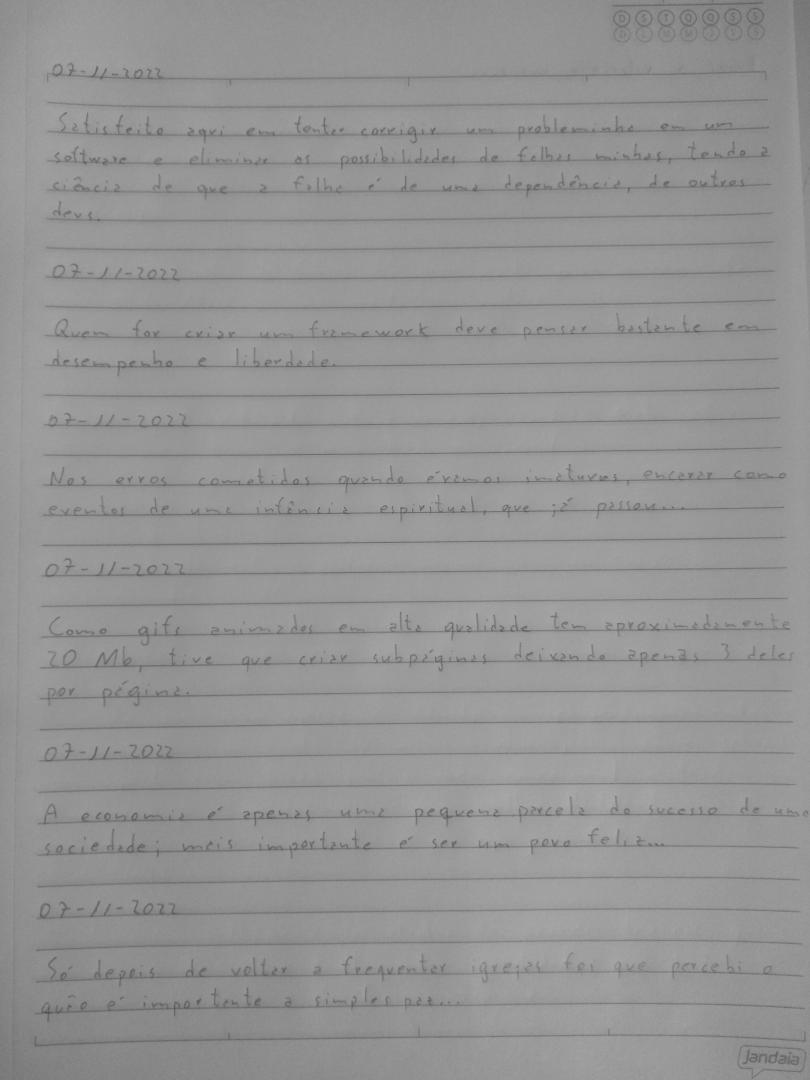 D S T Q Q S S
D L M M J V S
07-11-2022
Satisfeito aqui em tentar corrigir um probleminha em um
software e eliminar as possibilidades de falhas minhas, tendo a
ciência de que a falha é de uma dependência, de outros
devs.
07-11-2022
Quem for criar um framework deve pensar bastante em
desempenho e liberdade.
07-11-2022
Nos erros cometidos quando éramos imaturos, encarar como
eventos de uma infância espiritual, que já passou...
07-11-2022
Como gifs animados em alta qualidade tem aproximadamente
20 Mb, tive que criar subpáginas deixando apenas 3 deles
por página.
07-11-2022
A economia é apenas uma pequena parcela do sucesso de uma
sociedade; mais importante é ser um povo feliz...
07-11-2022
Só depois de voltar a frequentar igrejas foi que percebi o
quão é importante a simples paz...
Jandaia